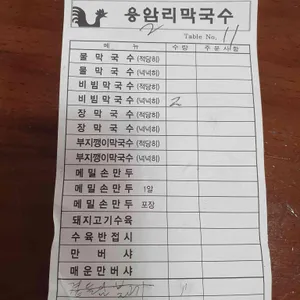 용암리막국수
2 Table No. 11
메 뉴 수 량 주 문 사 항
물 막 국 수 (적당히)
물 막 국 수 (넉넉히)
비 빔 막 국 수 (적당히)
비 빔 막 국 수 (넉넉히) 2
장 막 국 수 (적당히)
장 막 국 수 (넉넉히)
부지깽이막국수 (적당히)
부지깽이막국수 (넉넉히)
메 밀 손 만 두
메 밀 손 만 두 1알
메 밀 손 만 두 포장
돼지고기수육
수 육 반 접 시
만 버 샤
매 운 만 버 샤